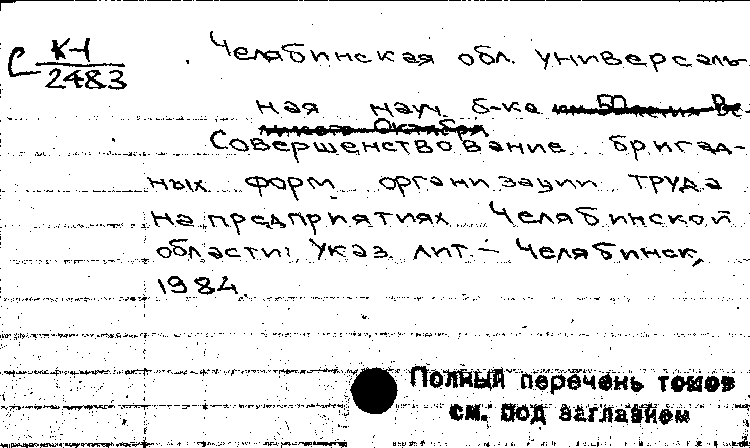 С К-1
2483
Челябинская обл. универсаль-
ная науч. б-ка им. 50-летия Ве
ликого Октября
Совершенствование бригад-
ных форм организации труда
на предприятиях Челябинской
области: Указ. лит. - Челябинск,
1984.
Полный перечень томов
см. под заглавием